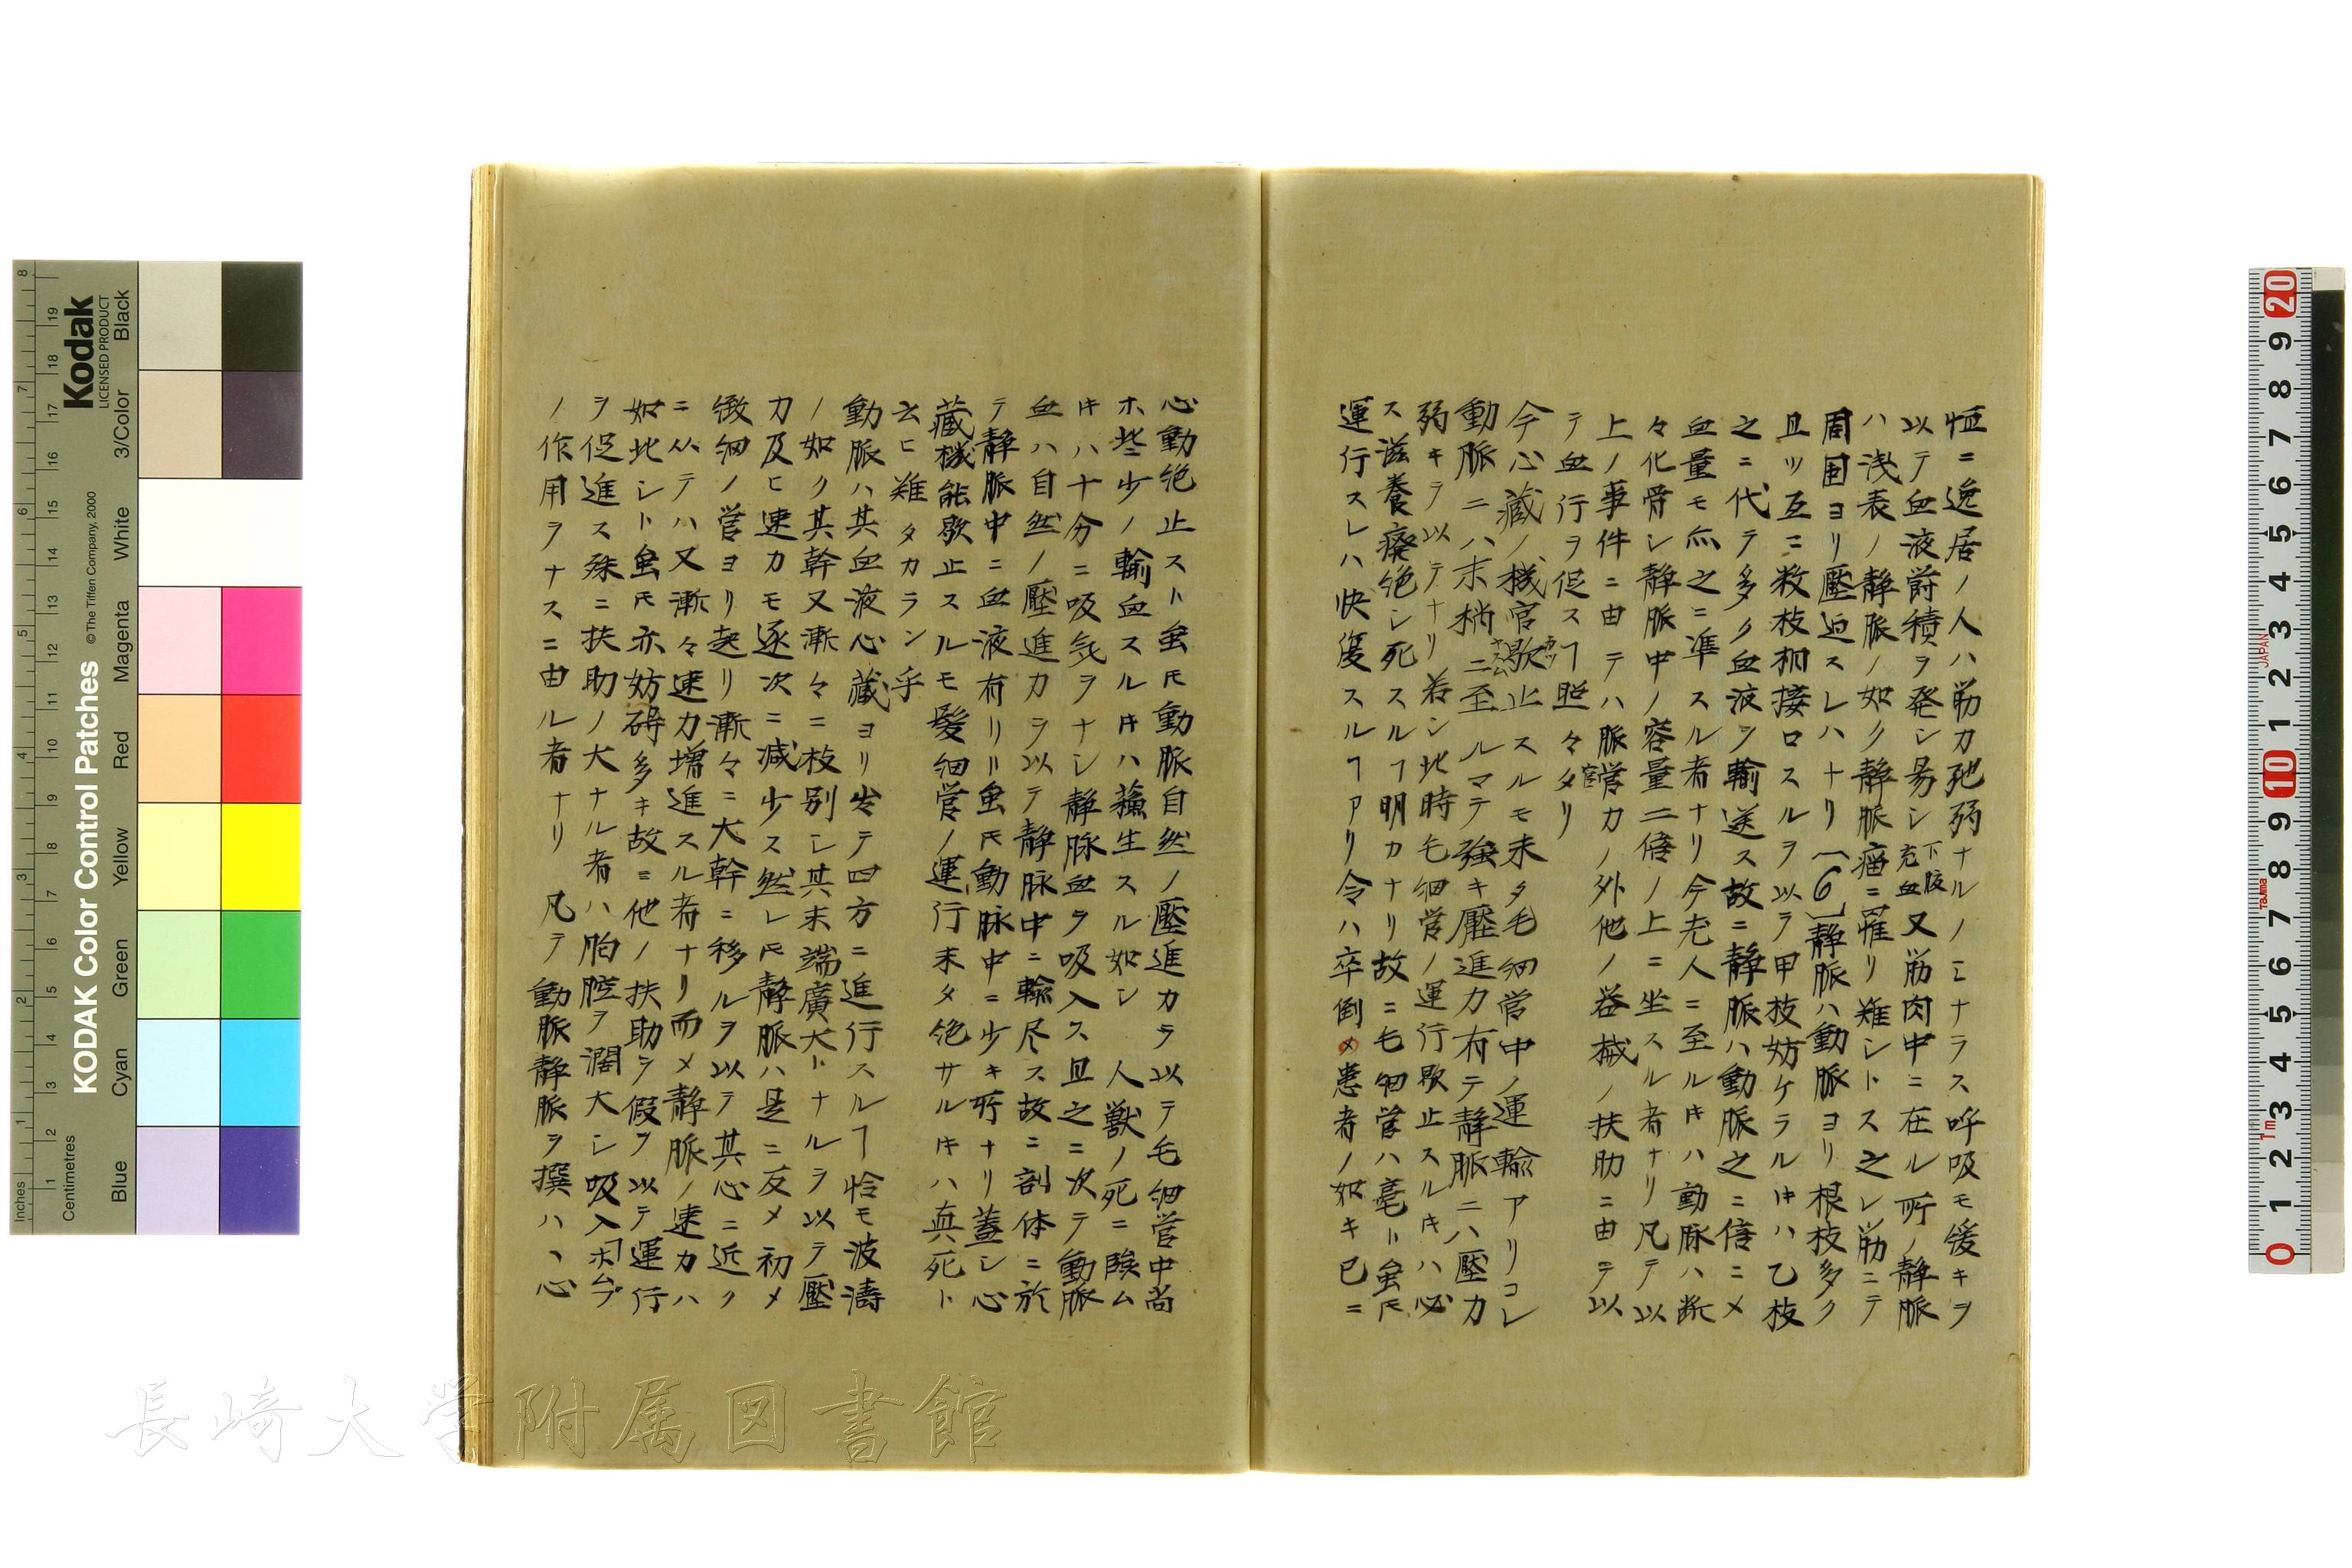 恒ニ逸居ノ人ハ筋力弛弱ナルノミナラス呼吸モ緩キヲ
以テ血液欝積ヲ発シ易シ下肢充血又筋肉中ニ在ル所ノ静脈
ハ浅表ノ静脈ノ如ク静脈瘤ニ罹リ難シトス之レ筋ニテ
周囲ヨリ壓迫スレハナリ〔6〕静脈ハ動脈ヨリ根枝多ク
且ツ互ニ数枝相接口スルヲ以テ甲枝妨ケラルヰハ乙枝
之ニ代テ多ク血液ヲ輸送ス故ニ静脈ハ動脈之ニ倍ニメ
血量モ亦之ニ準スル者ナリ今老人ニ至ルヰハ動脈ハ漸
々化骨シ静脈中ノ容量二倍ノ上ニ坐スル者ナリ凡テ以
上ノ事件ニ由テハ脈管力ノ外他ノ器械ノ扶助ニ由テ以
テ血行ヲ促スヿ昭々タリ
今心藏ノ機官歇止スルモ未タ毛細管中ノ運輸アリコレ
動脈ニハ末梢ニ至ルマテ強キ壓進力有テ静脈ニハ壓力
弱キヲ以テナリ若シ此時毛細管ノ運行歇止スルヰハ必
ス滋養癈絶シ死スルヿ明カナリ故ニ毛細管ハ毫モ虽𪜈
運行スレハ快復スルヿアリ令ハ卒倒メ患者ノ如キ已ニ
心動絶止スト虽𪜈動脈自然ノ壓進力ヲ以テ毛細管中尚
ホ些少ノ輸血スルヰハ蘓生スル如シ 人獣ノ死ニ臨ム
ヰハ十分ニ吸気ヲナシ静脉血ヲ吸入ス且之ニ次テ動脈
血ハ自然ノ壓進力ヲ以テ静脉中ニ輸尽ス故ニ剖体ニ於
テ静脈中ニ血液有リ虽𪜈動脉中ニ少キ所ナリ蓋シ心
藏機能歇止スルモ髪細管ノ運行未タ絶サルヰハ真死ト
云ヒ難タカラン乎
動脈ハ其血液心藏ヨリ発テ四方ニ進行スルヿ恰モ波濤
ノ如ク其幹又漸々ニ枝別シ其末端廣大トナルヲ以テ壓
力及ヒ速力モ逐次ニ減少ス然レ𪜈静脈ハ是ニ反メ初メ
微細ノ管ヨリ起リ漸々ニ大幹ニ移ルヲ以テ其心ニ近ク
ニ从テハ又漸々速力増進スル者ナリ而メ静脈ノ速力ハ
如此シト虽𪜈亦妨碍多キ故ニ他ノ扶助ヲ假ヲ以テ運行
ヲ促進ス殊ニ扶助ノ大ナル者ハ胸腔ヲ濶大シ吸入ホムプ
ノ作用ヲナスニ由ル者ナリ 凡テ動脈静脈ヲ撰ハヽ心
長崎大学附属図書館
Kodak
LICENSED PRODUCT
KODAK Color Control Patches
© The Tiffen Company, 2000
Inches
Centimetres
Blue Cyan Green Yellow Red Magenta White 3/Color Black